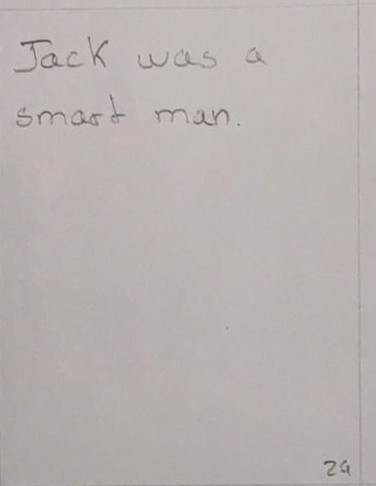 Jack was a
smart man.
24